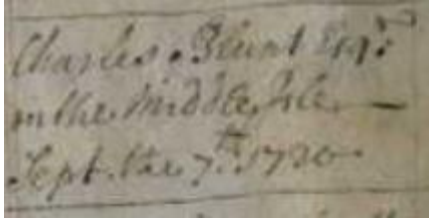 Charles Blunt Esqr.
in the Middle Isle —
Sept. the 7th. 1720